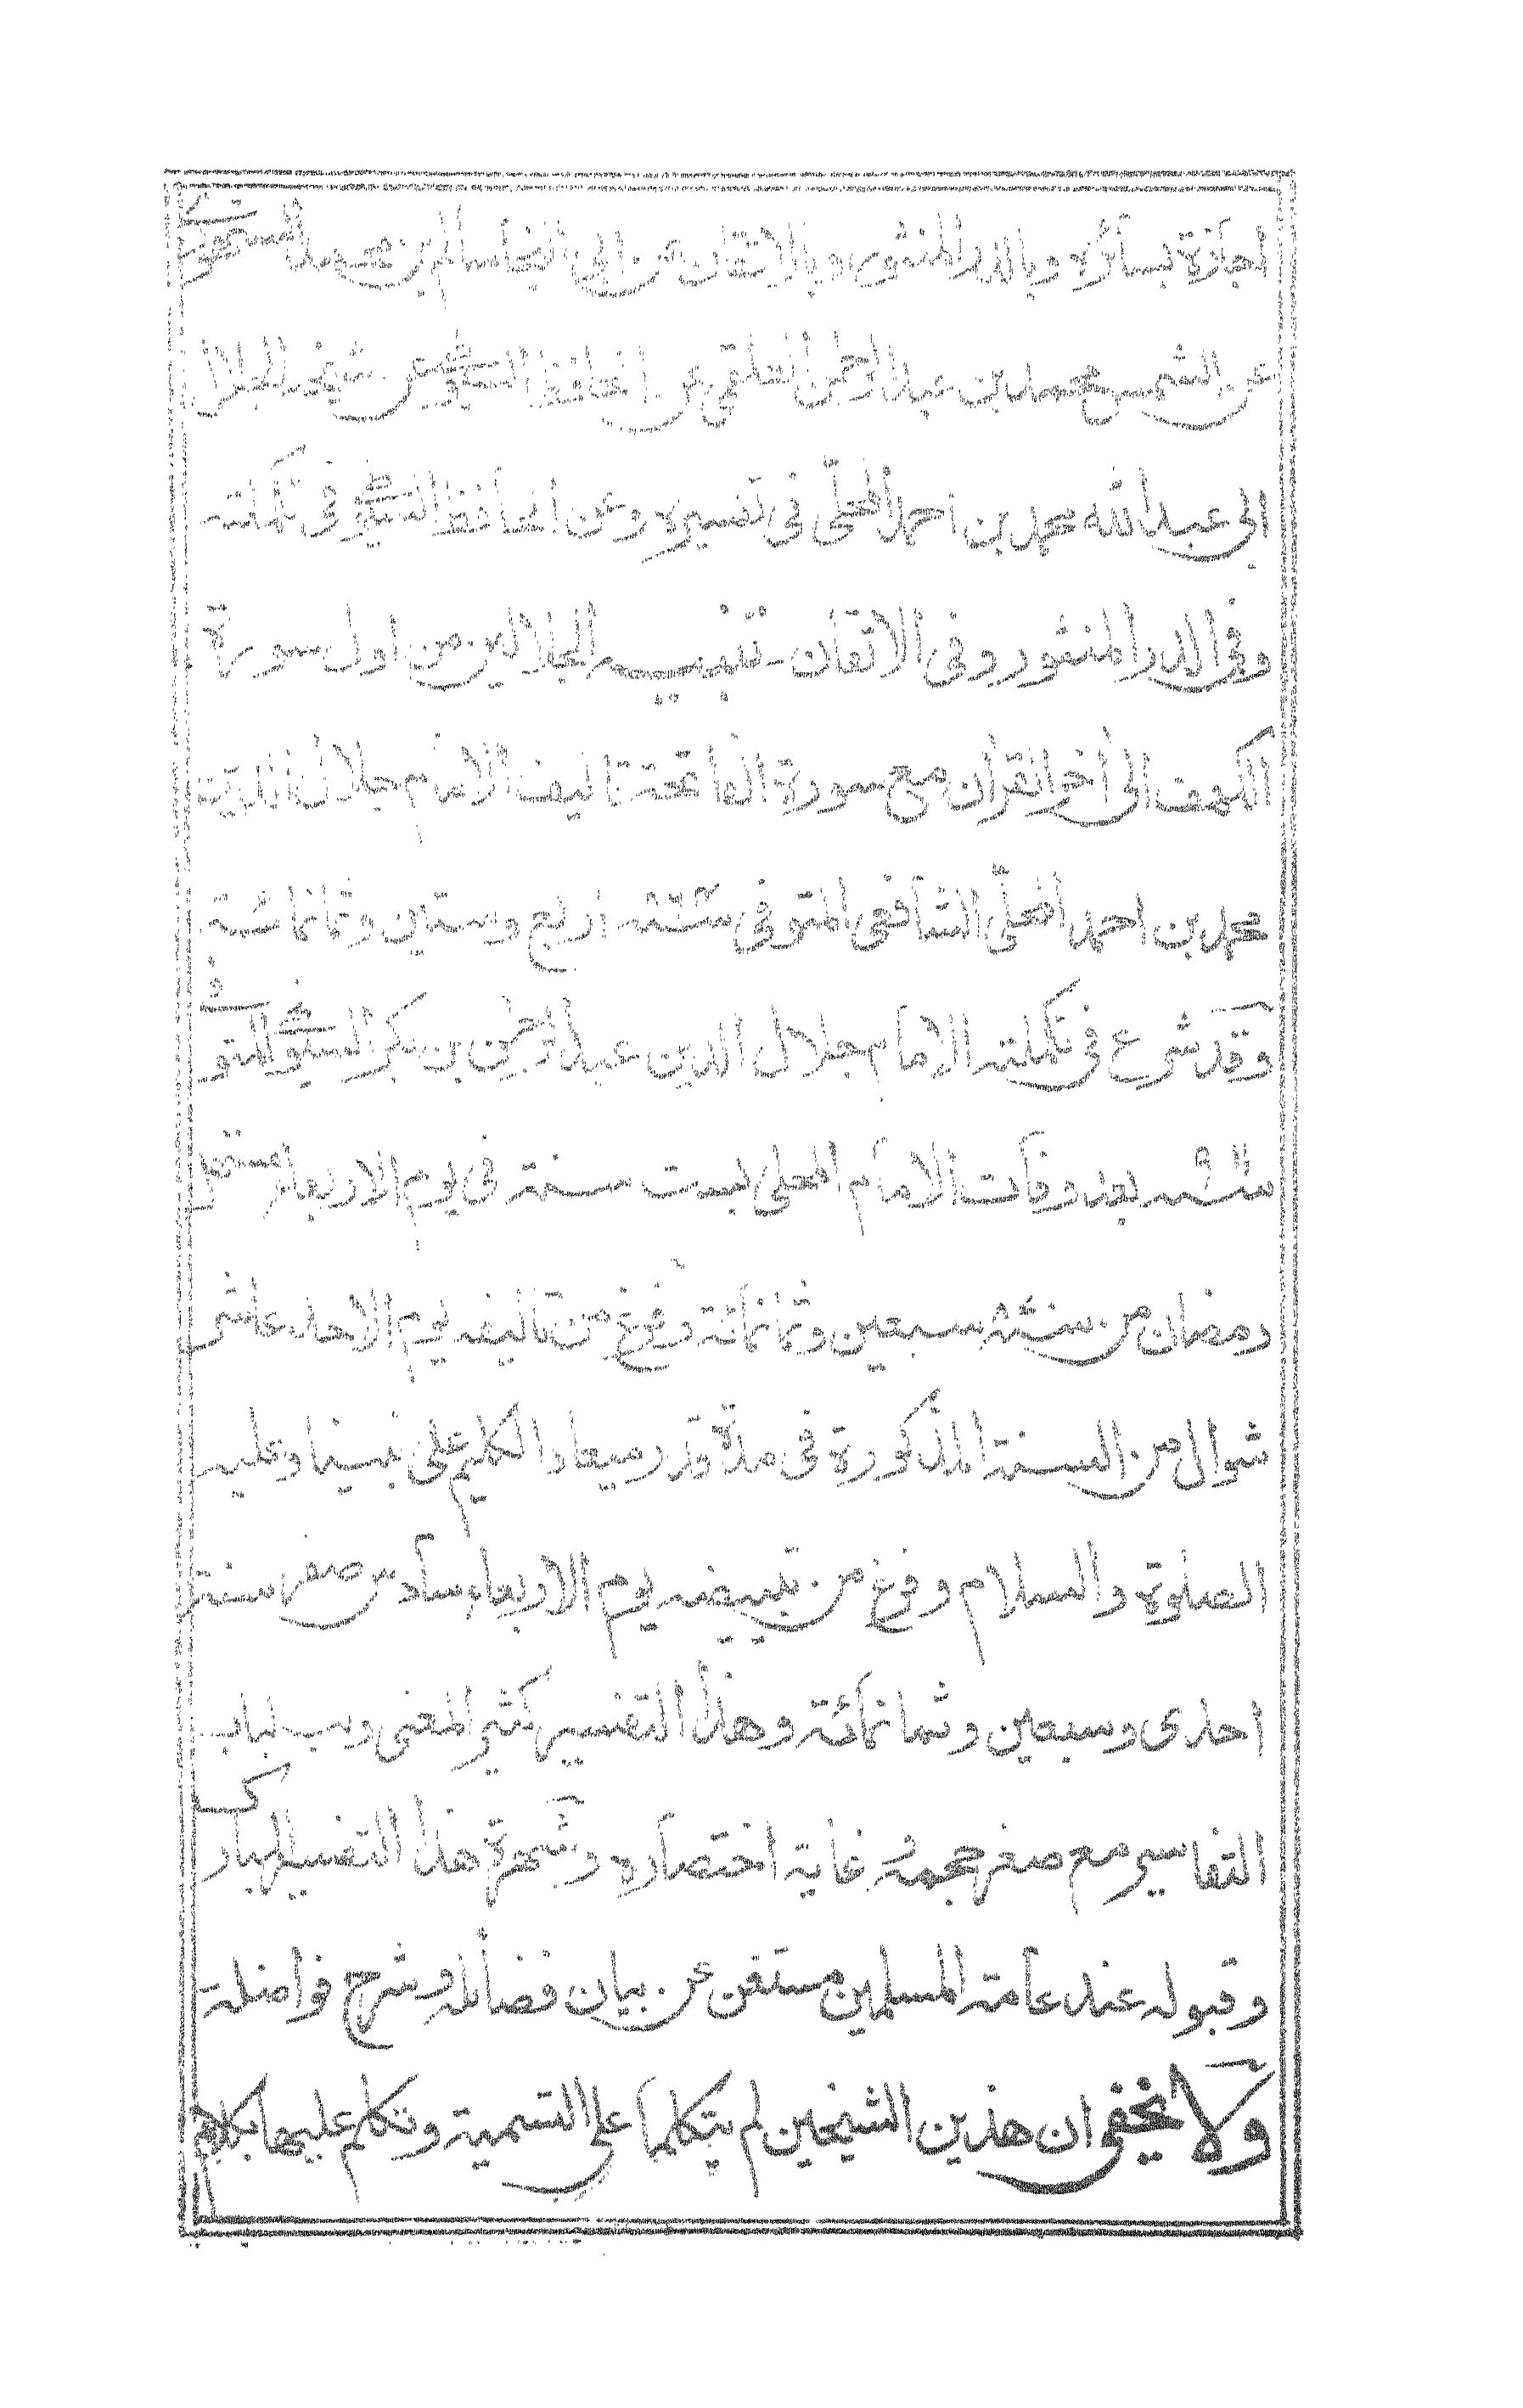 اجازة بسائره وبالدر المنثور وبالاتقان عن ابى النجا سالم بن محمد السنهورى
عن الشمس محمد بن عبد الرحمن العلقمى عن الحافظ السيوطى عن شيخه الجلال
ابى عبد الله محمد بن احمد المحلّى فى تفسيره وعن الحافظ السيوطى فى تكملته
وفى الدر المنثور وفى الاتقان۔ تنبيه الجلالين من اول سورة
الكهف الى أخر القرأن مع سورة الفاتحة تاليف الامام جلال الدين
محمد بن احمد المحلّى الشافعى المتوفى سنة ٨٦٤ه اربع وستين وثمانمائة
وقد شرع فى تكملته الامام جلال الدين عبد الرحمن بن بكر السيوطى المتوفى
سنة ٩١١ه بعد وفات الامام المحلى لست سنة فى يوم الاربعاء مستهل
رمضان من سنة ٨٧٠ه سبعين وثمانمائة وفرغ من تاليفه يوم الاحد عاشر
شوال من السنة المذكورة فى مدة قدر ميعاد الكليم على نبينا وعليه
الصلوة والسلام وفرغ من تبييضه يوم الاربعاء سادس صفر سنة
احدى وسبعين وثمانمائة وهذا التفسير كثير المعنى ولب لباب
التفاسير مع صغر حجمه غاية اختصاره وشهرة هذا التفسير المبارك
وقبوله عند عامة المسلمين مستغن عن بيان فضائله وشرح فواضله
ولا يخفى ان هذين الشيخين لم يتكلما على التسمية وتكلم عليها بكلام